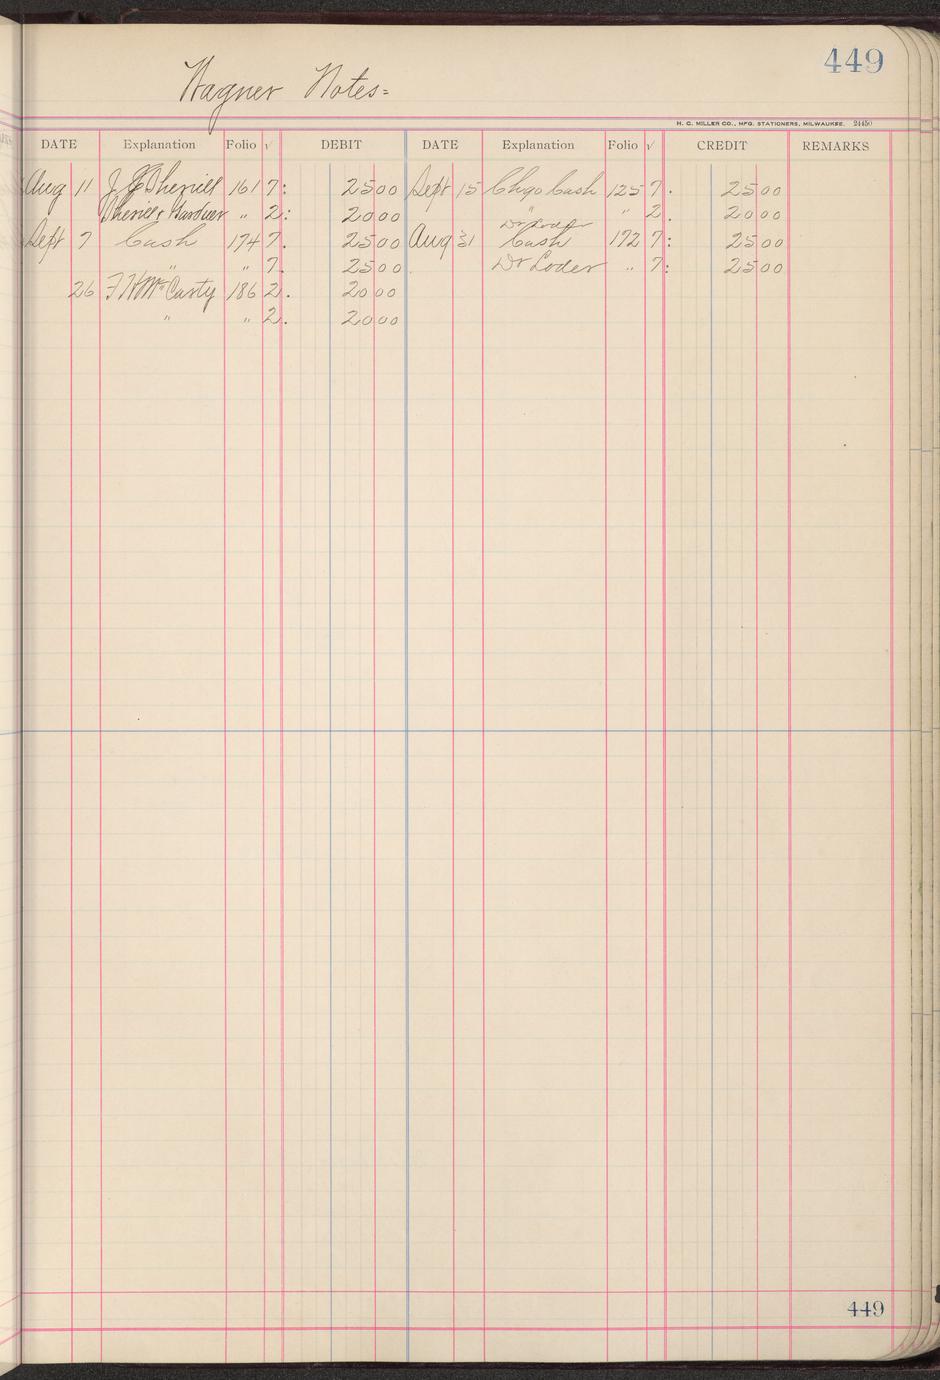 449
Wagner Notes=
H. C. MILLER CO., MFG. STATIONERS, MILWAUKEE. 24450
DATE Explanation Folio √ DEBIT DATE Explanation Folio √ CREDIT REMARKS
Aug 11 J E Sherill 161 7: 2500 Sept 15 Chgo Cash 125 7. 2500
Sherill & Gardner " 2: 2000 " " 2. 2000
Dr Loder
Sept 7 Cash 174 7. 2500 Aug 31 Cash 172 7: 2500
" " 7. 2500 Dr Loder " 7: 2500
26 F H McCarty 186 2. 2000
" " 2. 2000
449